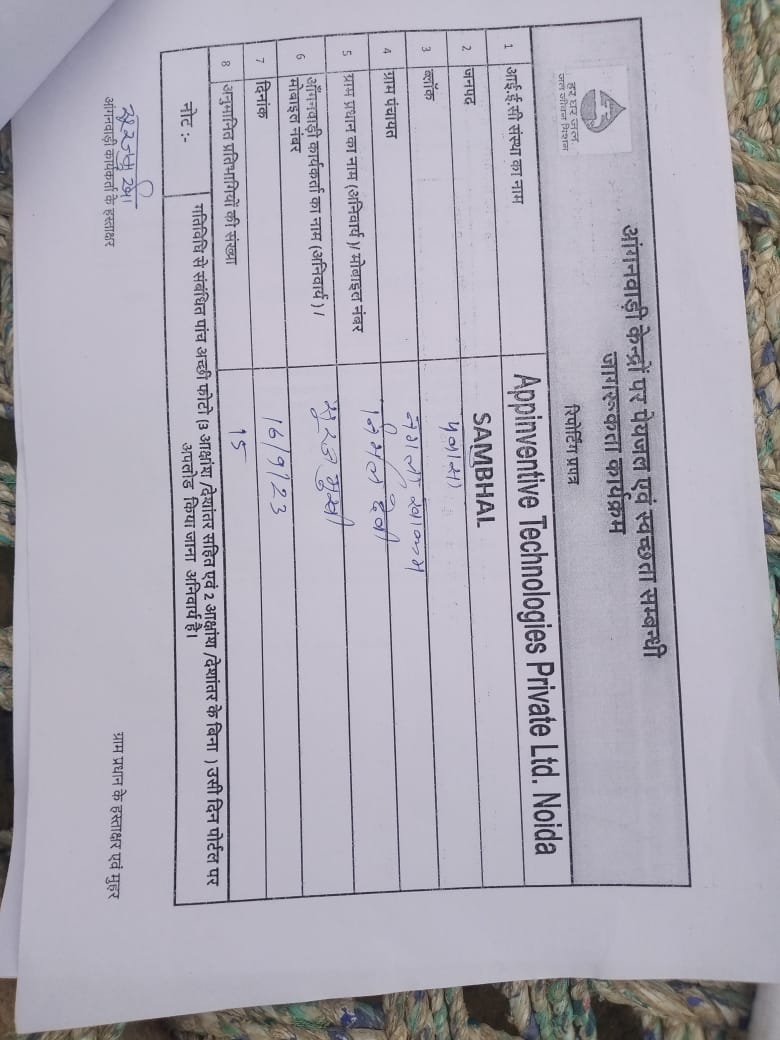 हर घर जल
जल जीवन मिशन
आंगनवाड़ी केन्द्रों पर पेयजल एवं स्वच्छता सम्बन्धी
जागरूकता कार्यक्रम
रिपोर्टिंग प्रपत्र
1 आई.ई.सी संस्था का नाम Appinventive Technologies Private Ltd. Noida
2 जनपद SAMBHAL
3 ब्लॉक पवासा
4 ग्राम पंचायत
5 ग्राम प्रधान का नाम (अनिवार्य )/ मोबाइल नंबर निर्मल देवी
6 आँगनवाड़ी कार्यकर्ता का नाम (अनिवार्य ) /
मोबाइल नंबर सूरजमुखी
7 दिनांक 16/9/23
8 अनुमानित प्रतिभागियों की संख्या 15
नोट :- गतिविधि से संबंधित पांच अच्छी फोटो (3 आक्षांश /देशांतर सहित एवं 2 आक्षांश /देशांतर के बिना ) उसी दिन पोर्टल पर
अपलोड किया जाना अनिवार्य है।
आंगनवाड़ी कार्यकर्ता के हस्ताक्षर
ग्राम प्रधान के हस्ताक्षर एवं मुहर